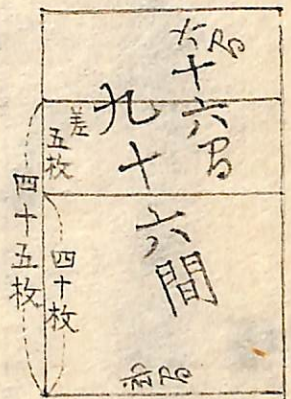 十六間
九十六間
差
五枚
四十枚
四十五枚